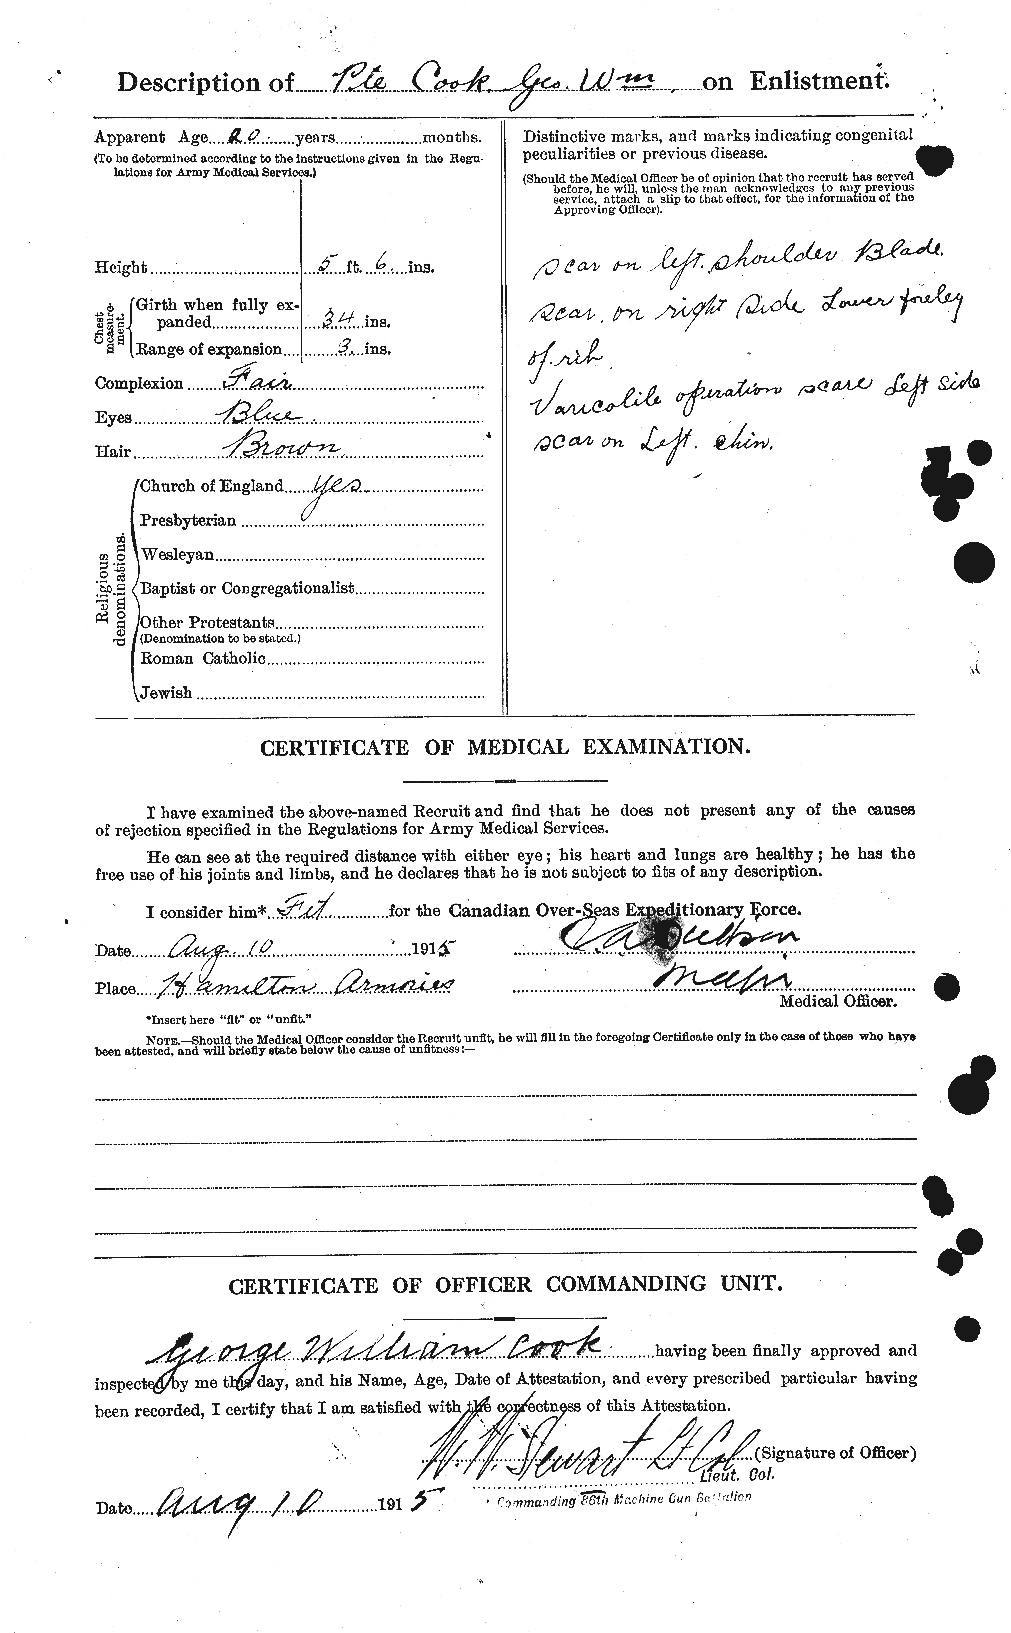 Description of Pte Cook Geo. Wm on Enlistment.
Apparent Age 20 years months.
(To be determined according to the instructions given in the Regu-
lations for Army Medical Services.)
Height 5 ft. 6 ins.
Chest measure-ment.
Girth when fully ex-
panded 34 ins.
Range of expansion 3 ins.
Complexion Fair
Eyes Blue
Hair Brown
Religious denominations.
Church of England yes
Presbyterian
Wesleyan
Baptist or Congregationalist
Other Protestants
(Denomination to be stated.)
Roman Catholic
Jewish
Distinctive marks, and marks indicating congenital
peculiarities or previous disease.
(Should the Medical Officer be of opinion that the recruit has served
before, he will, unless the man acknowledges to any previous
service, attach a slip to that effect, for the information of the
Approving Officer).
scar on left shoulder Blade.
scar on right side Lower
of rib
operation scare Left side
scar on Left chin.
CERTIFICATE OF MEDICAL EXAMINATION.
I have examined the above-named Recruit and find that he does not present any of the causes
of rejection specified in the Regulations for Army Medical Services.
He can see at the required distance with either eye; his heart and lungs are healthy; he has the
free use of his joints and limbs, and he declares that he is not subject to fits of any description.
I consider him* Fit for the Canadian Over-Seas Expeditionary Force.
Date Aug 10 1915
Place Hamilton Armories
Medical Officer.
*Insert here "fit" or "unfit."
NOTE.—Should the Medical Officer consider the Recruit unfit, he will fill in the foregoing Certificate only in the case of those who have
been attested, and will briefly state below the cause of unfitness:—
CERTIFICATE OF OFFICER COMMANDING UNIT.
George William Cook having been finally approved and
inspected by me this day, and his Name, Age, Date of Attestation, and every prescribed particular having
been recorded, I certify that I am satisfied with the correctness of this Attestation.
W. W. Stewart Lt Col (Signature of Officer)
Lieut. Col.
Commanding 86th Machine Gun Battalion
Date Aug 10 1915